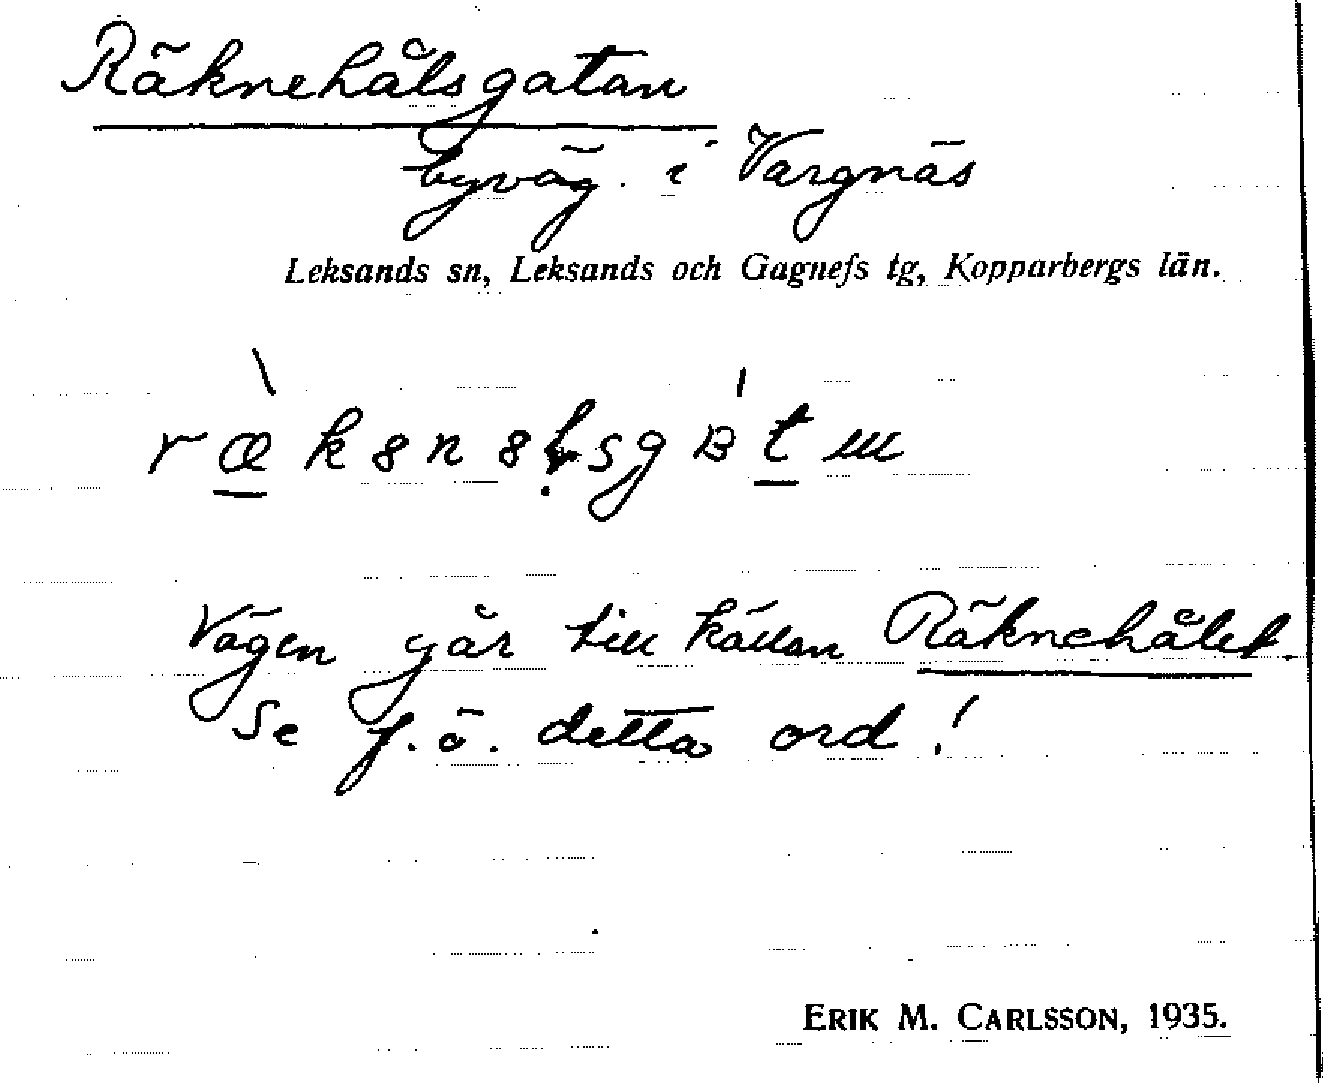 Räknehålsgatan
byväg i Vargnäs
Leksands sn, Leksands och Gagnefs tg, Kopparbergs län.
Vägen går till källan Räknehålet.
Se f.ö. detta ord!
ERIK M. CARLSSON, 1935.